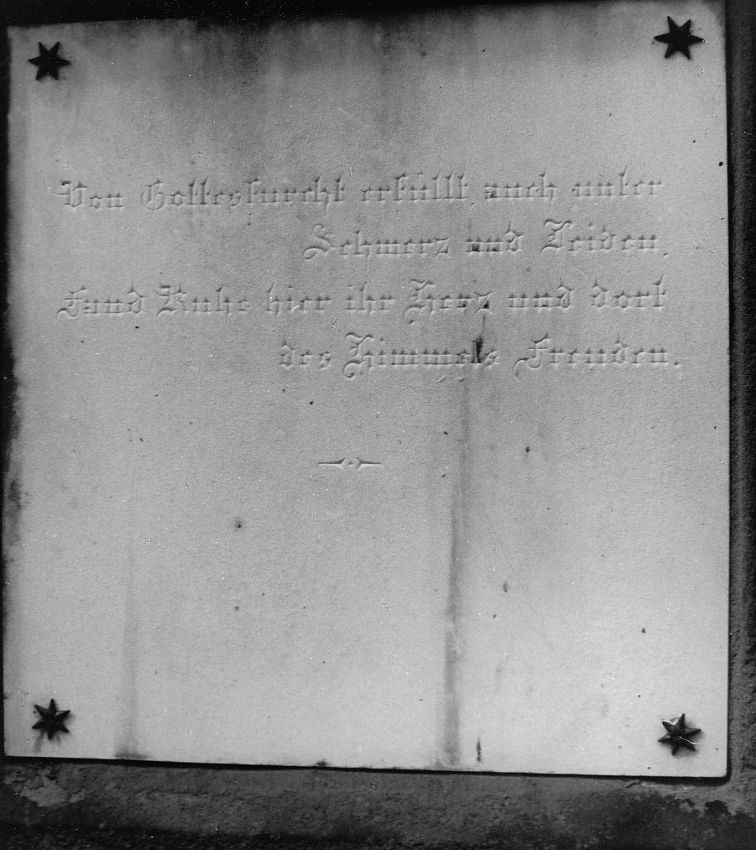 Von Gottesfurcht erfüllt auch unter
Schmerz und Leiden,
Fand Ruhe hier ihr Herz und dort
des Himmels Freuden.